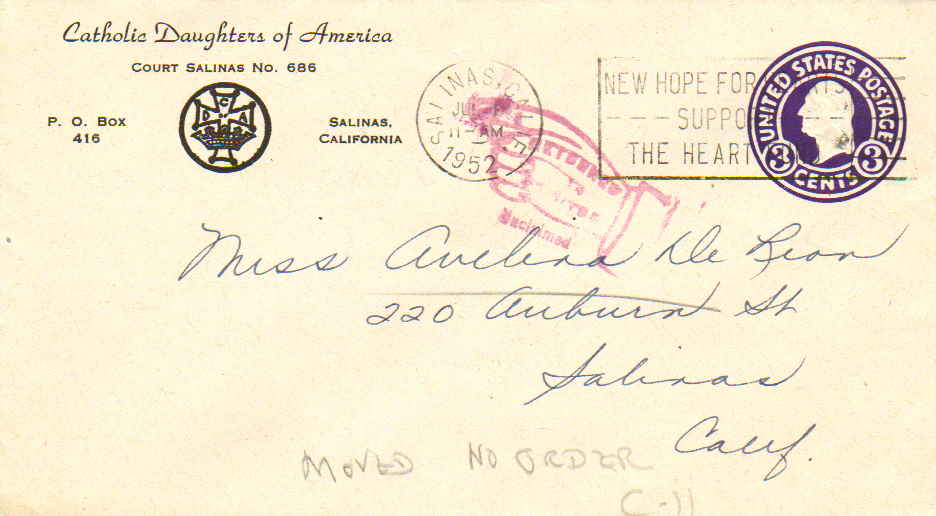 Catholic Daughters of America
COURT SALINAS No. 686
P. O. Box
416
C
D OF A
SALINAS,
CALIFORNIA
SALINAS, CALIF.
JUL
11 - AM
1952
NEW HOPE FOR
SUPPO
THE HEART
UNITED STATES POSTAGE
3 CENTS 3
RETURNED
TO
Unclaimed
Miss Avelina De Leon
220 Auburn St
Salinas
Calif.
MOVED NO ORDER
C-11